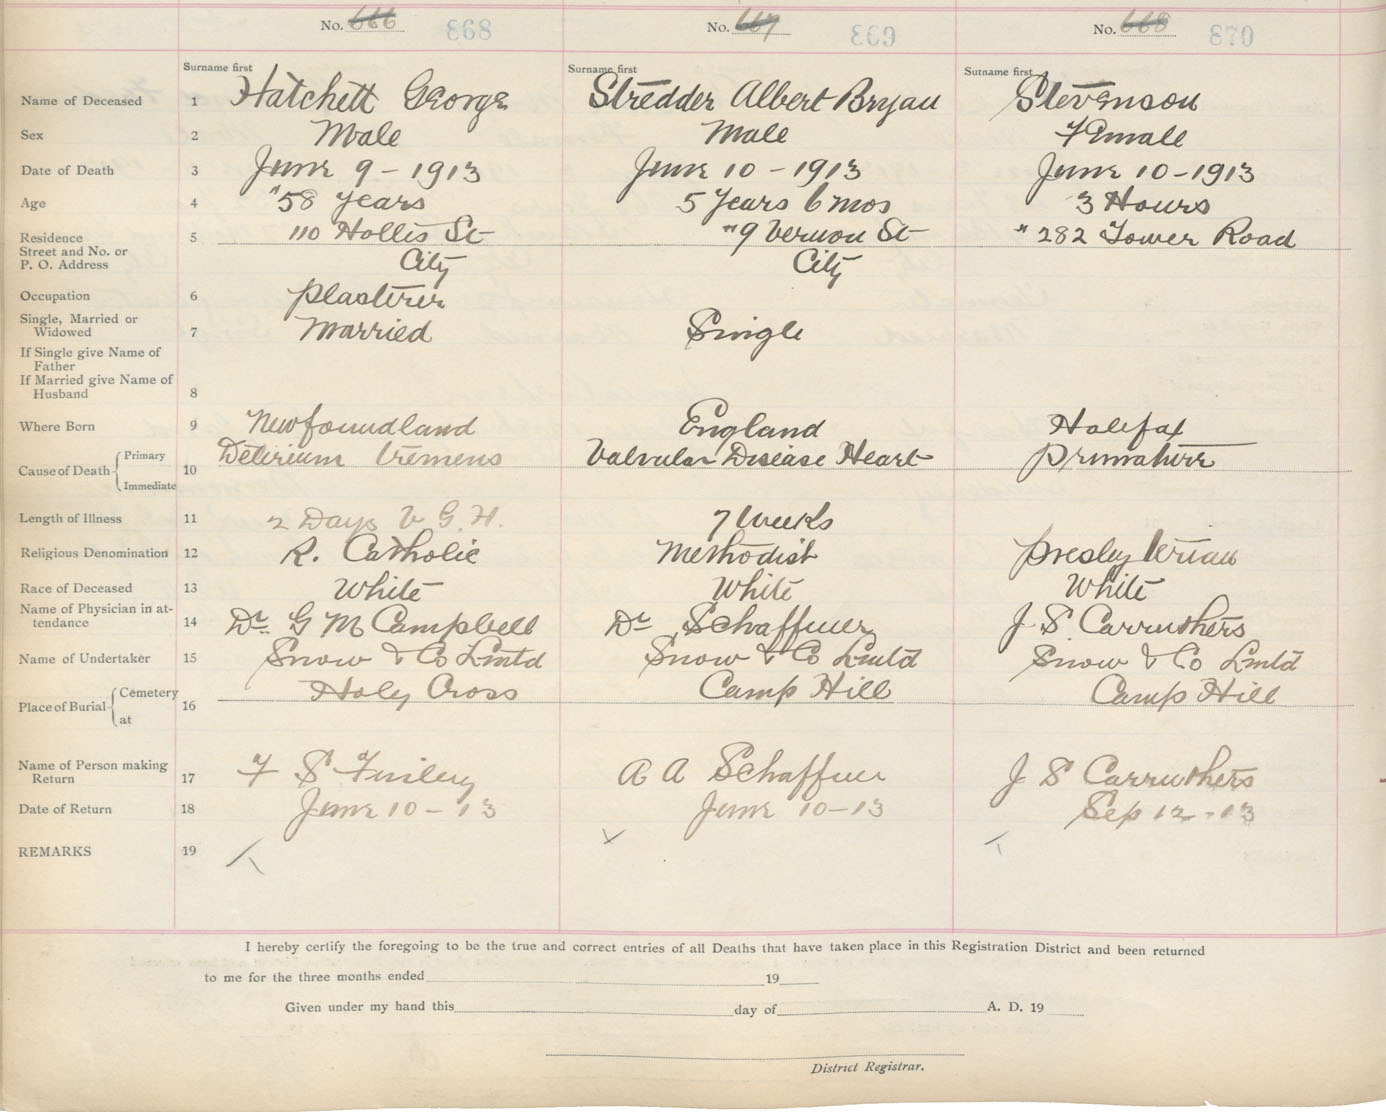 No. 666 868 No. 667 869 No. 668 870
Surname first Surname first Surname first
Name of Deceased 1 Hatchett George Stredder Albert Bryan Stevenson
Sex 2 Male Male Female
Date of Death 3 June 9 - 1913 June 10 - 1913 June 10 - 1913
Age 4 "58 years 5 years 6 mos 3 Hours
Residence
Street and No. or
P. O. Address
5 110 Hollis St "9 Vernon St " 282 Tower Road
City City
Occupation 6 Plasterer
Single, Married or
Widowed 7 Married Single
If Single give Name of
Father
If Married give Name of
Husband 8
Where Born 9 Newfoundland England Halifax
Cause of Death Primary
Immediate
10 Delirium tremens Valvular Disease Heart Premature
Length of Illness 11 2 Days V. G. H. 7 Weeks
Religious Denomination 12 R. Catholic Methodist Presbyterian
Race of Deceased 13 White White White
Name of Physician in at-
tendance 14 Dr. G M Campbell Dr Schaffner J S. Carruthers
Name of Undertaker 15 Snow & Co Lmtd Snow & Co Lmtd Snow & Co Lmtd
Place of Burial Cemetery
at
16 Holy Cross Camp Hill Camp Hill
Name of Person making
Return 17 F S Finley A A Schaffner J S Carruthers
Date of Return 18 June 10 - 13 June 10-13 Sep 12 - 13
REMARKS 19
I hereby certify the foregoing to be the true and correct entries of all Deaths that have taken place in this Registration District and been returned
to me for the three months ended 19
Given under my hand this day of A. D. 19
District Registrar.